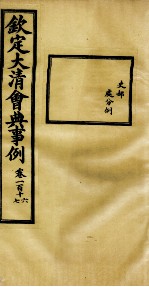 欽定大清會典事例 卷一百十六七
吏部
處分例